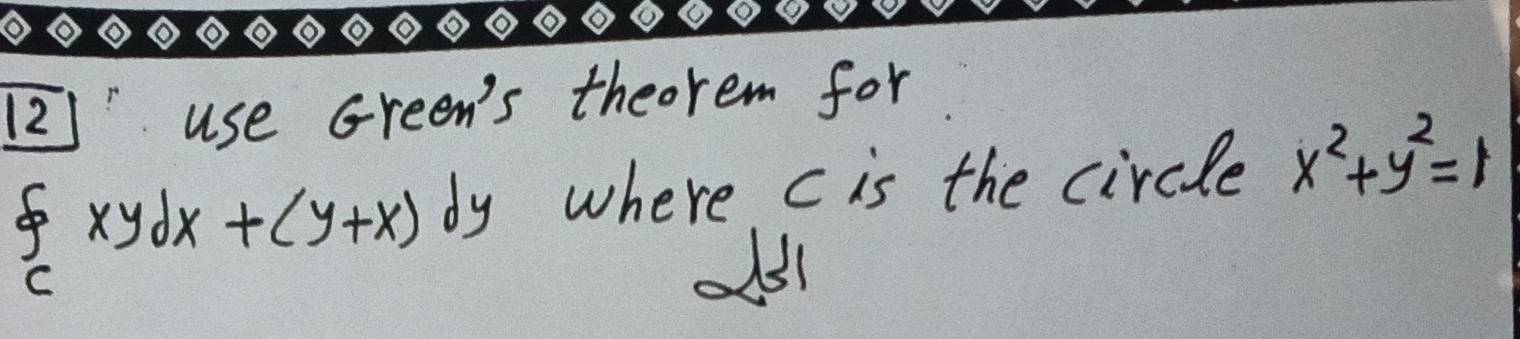 12 use Green's theorem for
∮ xydx + (y+x) dy where C is the circle x²+y²=1
C